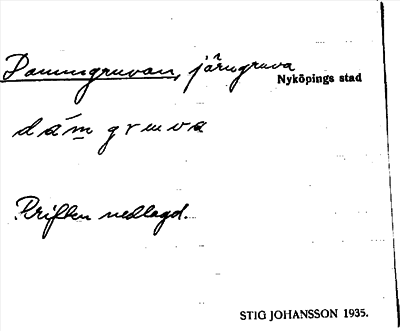 Dammgruvan, järngruva
Nyköpings stad
dám gruva
Driften nedlagd.
STIG JOHANSSON 1935.